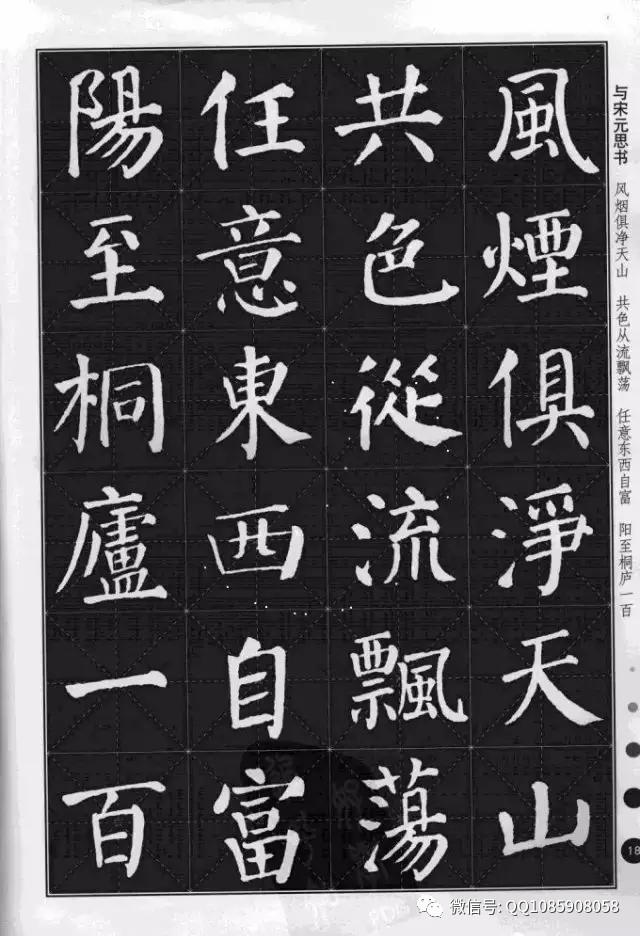 与宋元思书 风烟俱净天山 共色从流飘荡 任意东西自富 阳至桐庐一百
風煙俱淨天山
共色從流飄蕩
任意東西自富
陽至桐廬一百
18
微信号: QQ1085908058